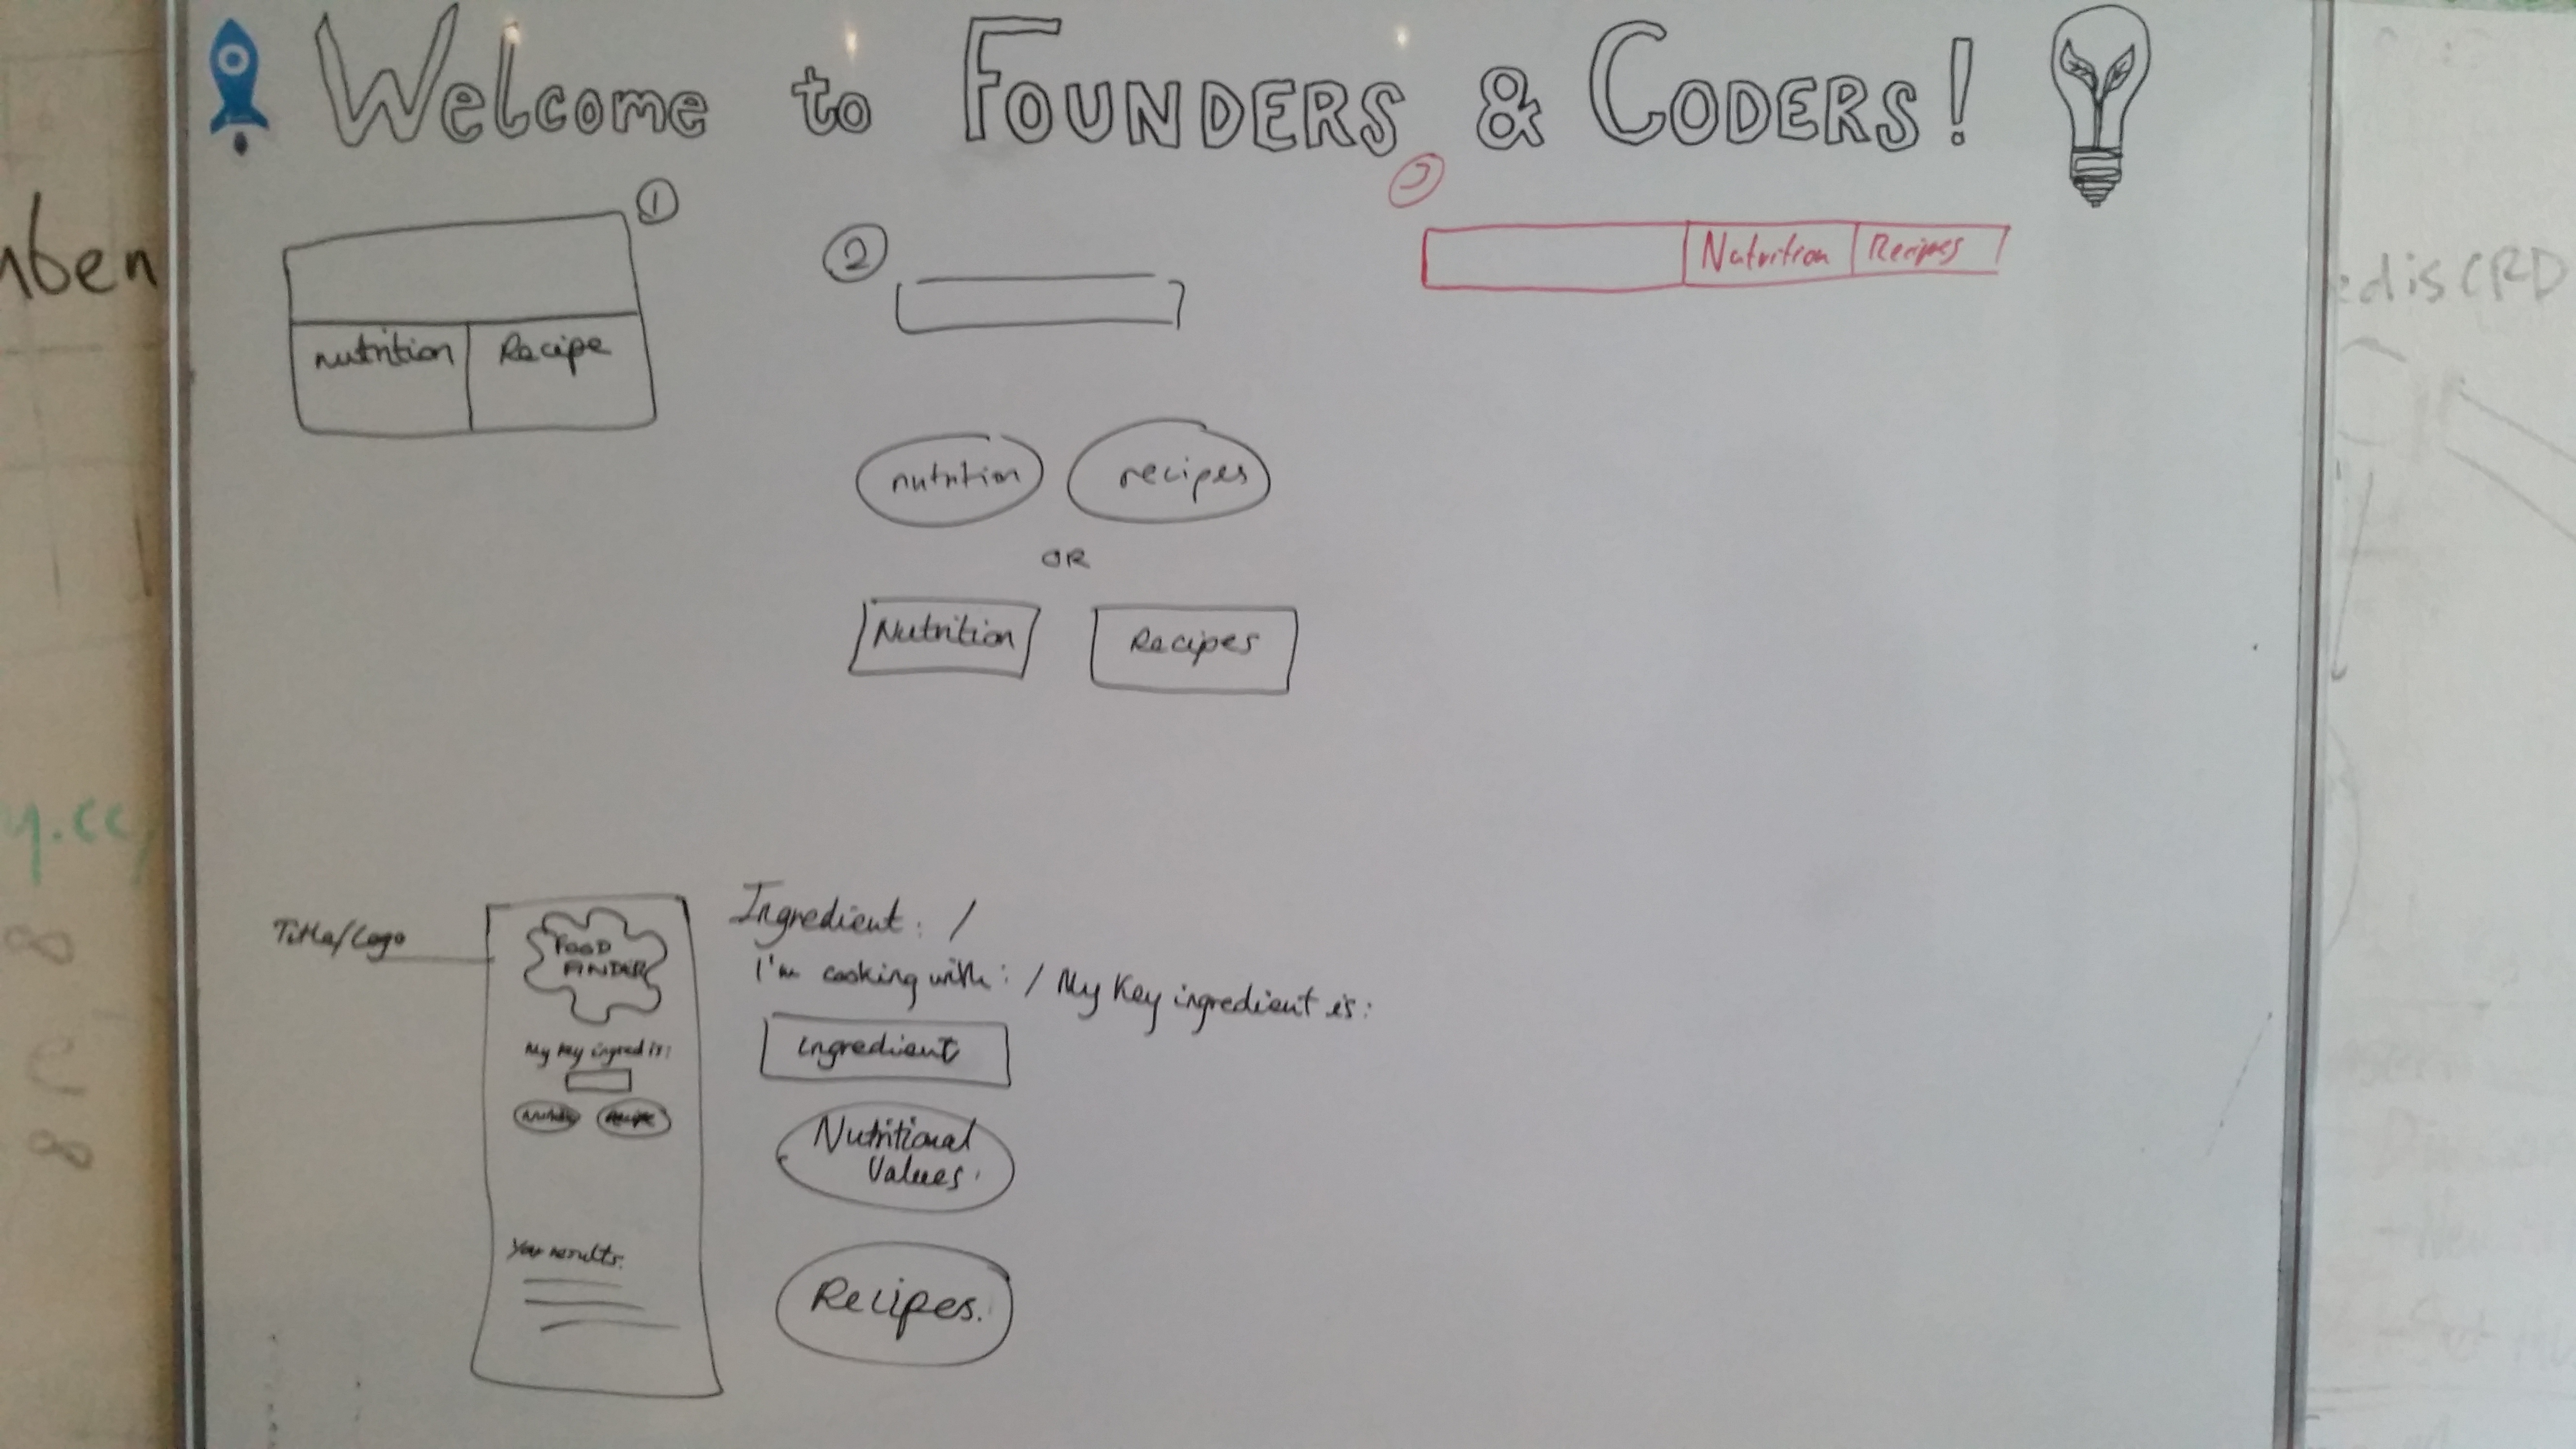 Welcome to FOUNDERS & CODERS!
1
nutrition Recipe
2
nutrition recipes
OR
Nutrition Recipes
3
Nutrition Recipes
Title/Logo
FOOD
FINDER
My key ingred is:
Recipe
Your results:
Ingredient: /
I'm cooking with: / My Key ingredient is:
ingredient
Nutritional
Values.
Recipes.
edisCRD
8
8